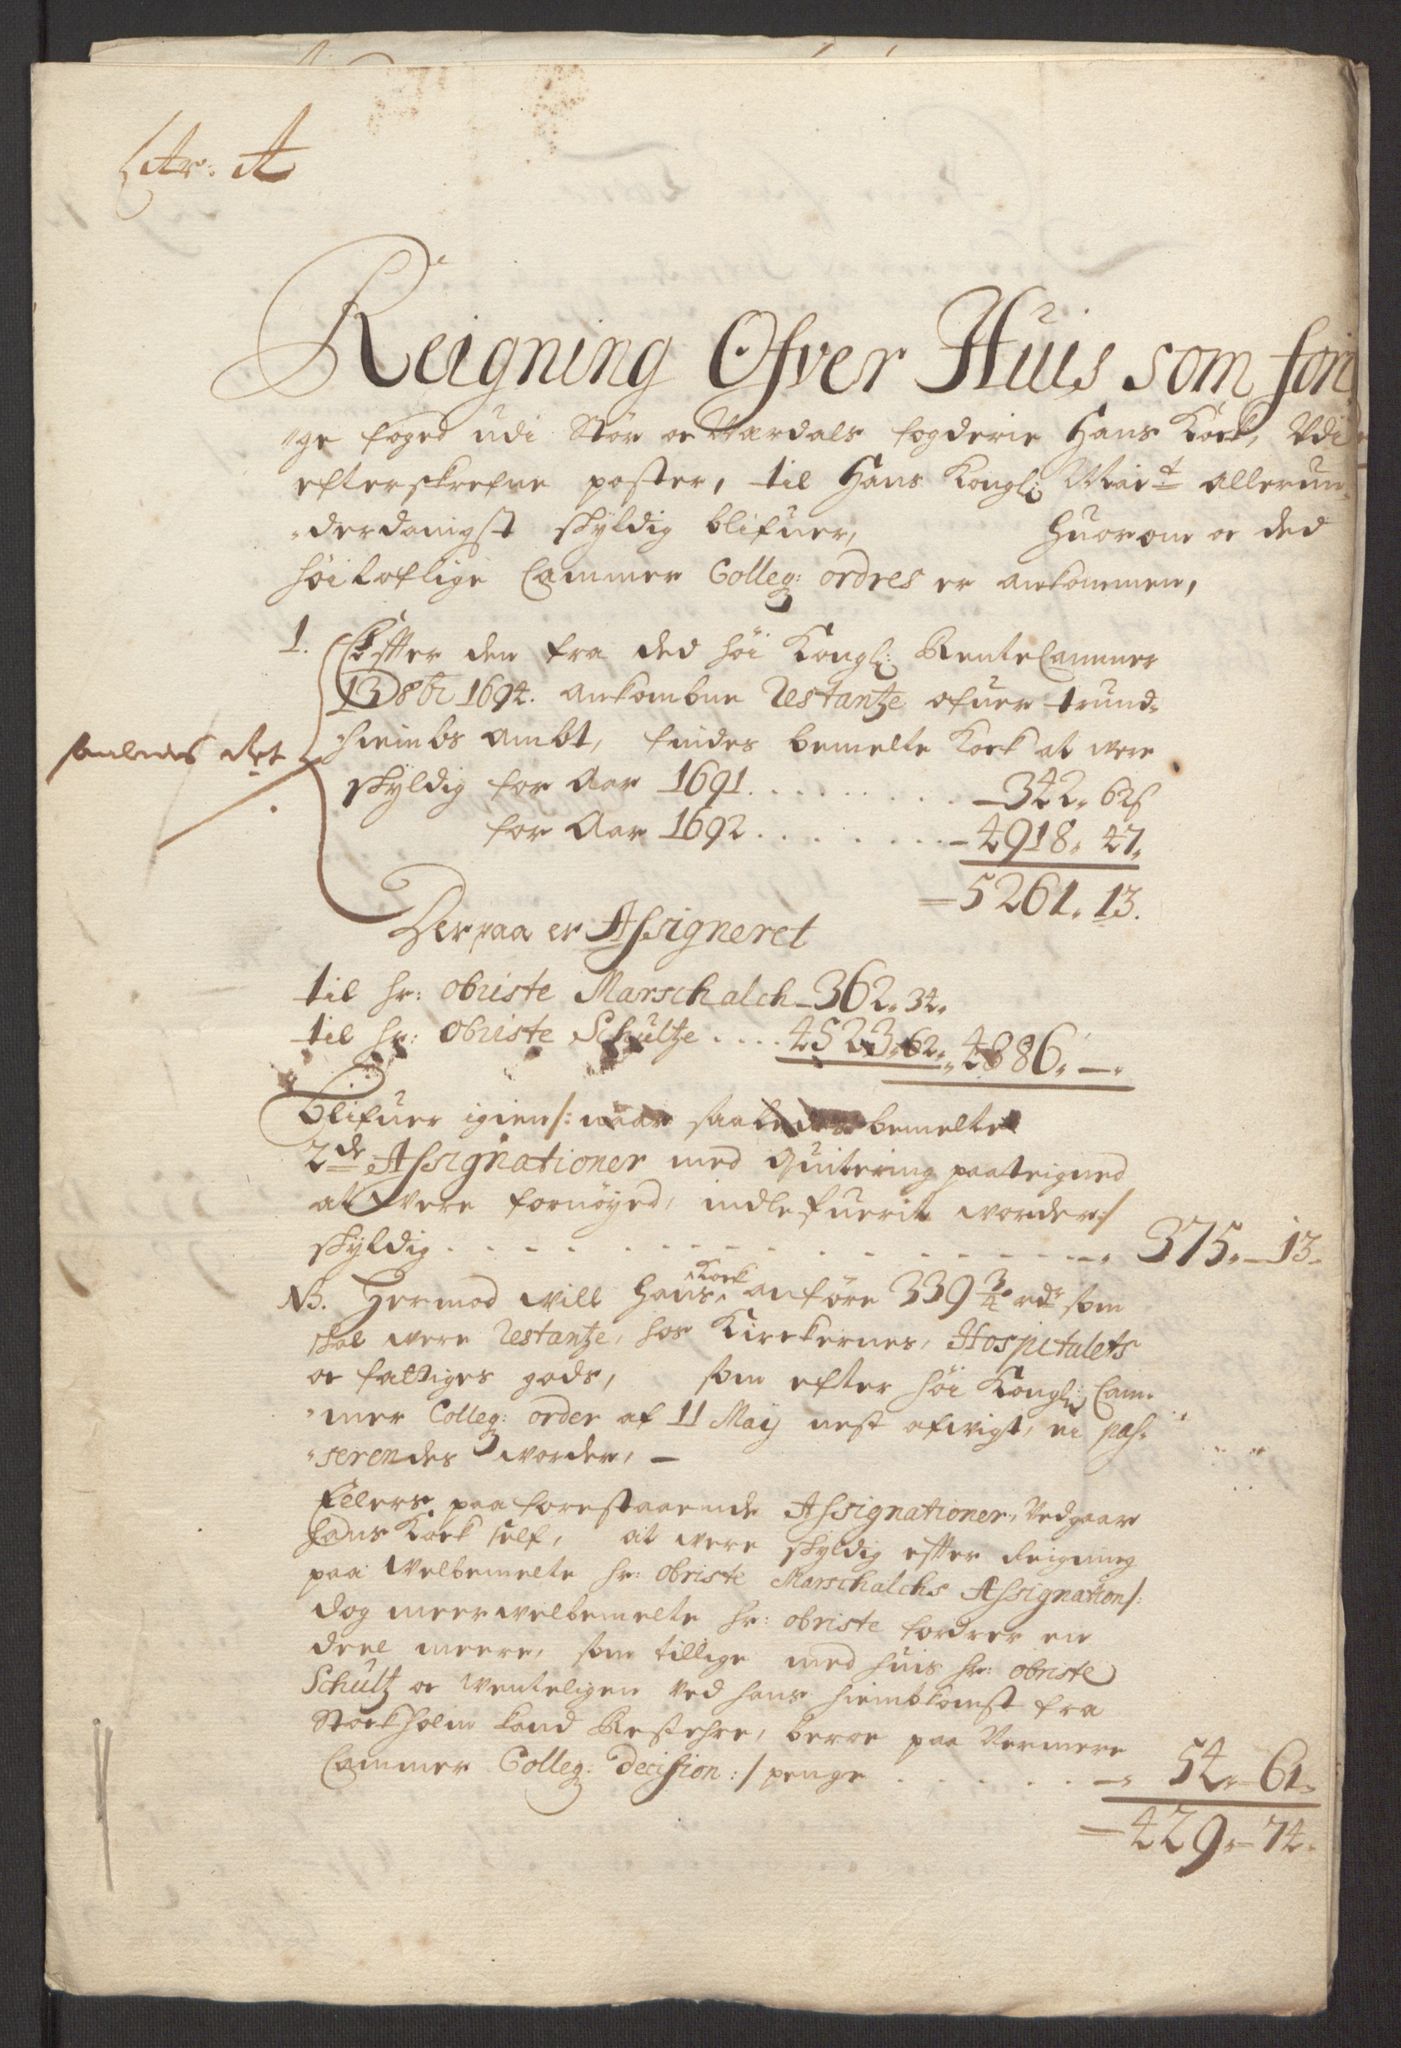 Litr: A
Reigning Ofver Huis som fori
"ge foged udi Stør oc Værdals fogderie Hans Kock, Udi
efterskrefne poster, til Hans Kongl: Maiet allerun-
"derdanigst skyldig blifuer, huorom oc ded
høiloflige Cammer Colleg: ordres er ankommen,
1. Effter den fra ded høi Kongl: RenteCammer
13 8br 1694. ankombne Restantze ofuer trund-
hiembs ambt, findes bemelte Kock at were
saaledes Ret
skyldig for Aar 1691. - 342" 62s
for Aar 1692. - 4918" 47"
- 5261" 13.
Derpaa er Assigneret
til hr: obriste Marschalch - 362" 34"
til hr: obriste Schultze .... 4523" 62" 4886" -"
blifuer igien /: naar saaledes bemelte
2de Assignationer med quitering paateigned
at were fornøyed, indlefuerit worder :/
skyldig - " 375" - 13"
NB. Hermod will Hans Kock anføre 339 3/4 rdr som
skal were Restantze, hos Kirckernes, Hospitalets
oc fattiges gods, som efter høi Kongl: Cam-
"mer Colleg: order af 11 Maij nest afvigt, ei pas-
"serendes worder, -
Ellers paa forestaaende Assignationer, Vedgaar
Hans Kock self, at were skyldig effter Reigning
paa Welbemelte hr: obriste Marschalchs Assignation /:
dog meerwelbemelte hr: obriste fordrer en
deel meere, som tillige med huis hr: obriste
Schultz oc wenteligen ved hans hiemkomst fra
Stockholm kand Restere, beroe paa Vermere
Cammer Colleg: Decission :/ penge - " 54" - 61"
- 429" - 74"